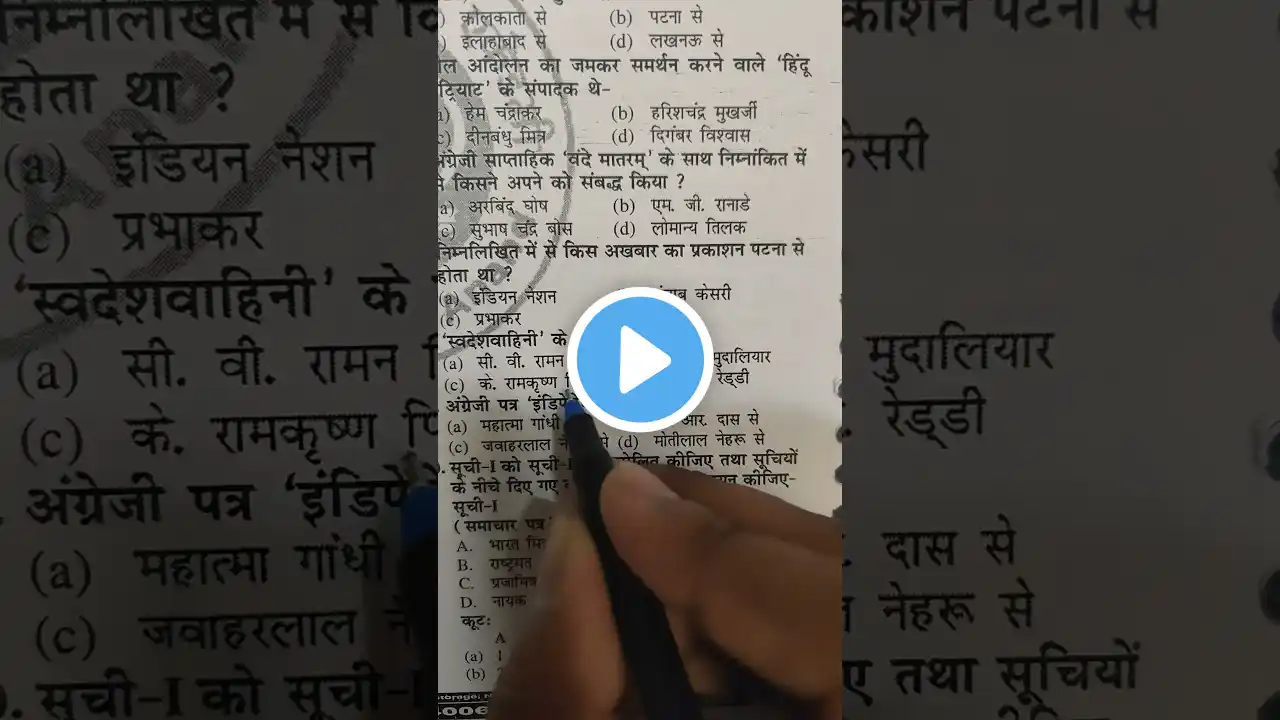 कोलकाता से (b) पटना से
इलाहाबाद से (d) लखनऊ से
ल आंदोलन का जमकर समर्थन करने वाले ‘हिंदू
ट्रियाट’ के संपादक थे-
हेम चंद्राकर (b) हरिशचंद्र मुखर्जी
दीनबंधु मित्र (d) दिगंबर विश्वास
अंग्रेजी साप्ताहिक ‘वंदे मातरम्’ के साथ निम्नांकित में
से किसने अपने को संबद्ध किया ?
a) अरबिंद घोष (b) एम. जी. रानाडे
c) सुभाष चंद्र बोस (d) लोमान्य तिलक
निम्नलिखित में से किस अखबार का प्रकाशन पटना से
होता था ?
(a) इंडियन नेशन केसरी
(c) प्रभाकर
‘स्वदेशवाहिनी’ के
(a) सी. वी. रामन मुदालियार
(c) के. रामकृष्ण रेड्डी
अंग्रेजी पत्र ‘इंडिपें
(a) महात्मा गांधी आर. दास से
(c) जवाहरलाल से (d) मोतीलाल नेहरू से
सूची-I को सूची-I कीजिए तथा सूचियों
के नीचे दिए गए कीजिए-
सूची-I
(समाचार पत्र
A. भारत
B. राष्ट्रमत
C. प्रजामित्र
D. नायक
कूटः
A
(a) 1
(b) 2